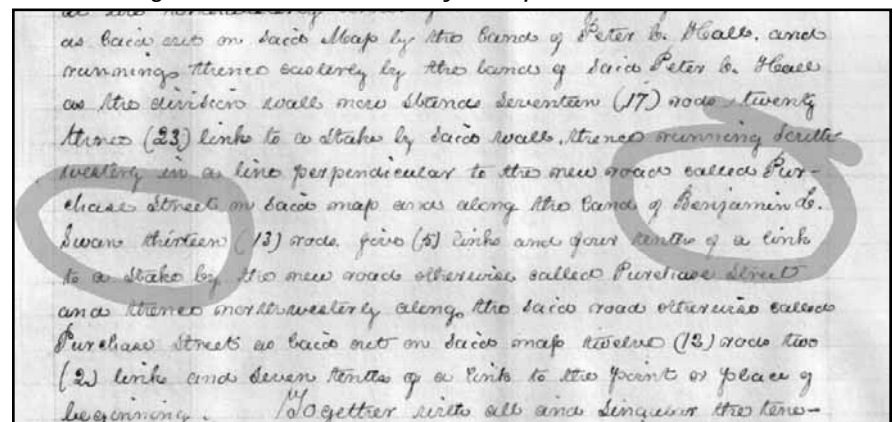 as laid out on said Map by the land of Peter C. Hall, and
running thence easterly by the land of said Peter C. Hall
as the division wall now stands seventeen (17) rods twenty
three (23) links to a stake by said wall, thence running South
westerly in a line perpendicular to the new road called Pur-
chase Street on said map and along the land of Benjamin L.
Swan thirteen (13) rods, five (5) links and four tenths of a link
to a stake by the new road otherwise called Purchase Street
and thence northwesterly along, the said road otherwise called
Purchase Street as laid out on said map twelve (12) rods two
(2) links and seven tenths of a link to the point or place of
beginning. Together with all and singular the tene-